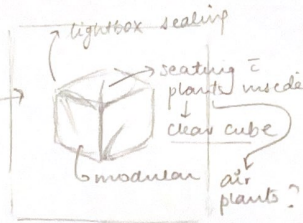 lightbox sealing
seating c̄
plants inside
clear cube
modular
air
plants?